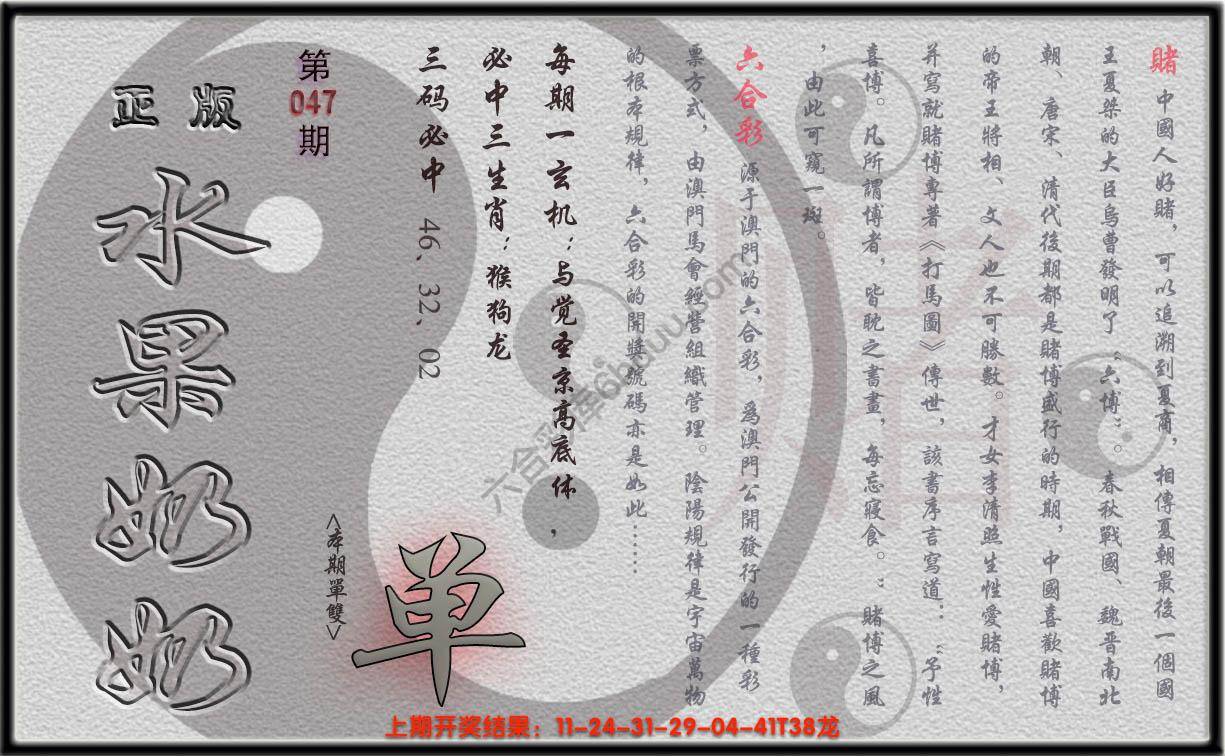 賭 中國人好賭，可以追溯到夏商，相傳夏朝最後一個國
王夏桀的大臣烏曹發明了“六博”。春秋戰國、魏晉南北
朝、唐宋、清代後期都是賭博盛行的時期，中國喜歡賭博
的帝王將相、文人也不可勝數。才女李清照生性愛賭博，
并寫就賭博專著《打馬圖》傳世，該書序言寫道：“予性
喜博。凡所謂博者，皆耽之書畫，每忘寢食。”賭博之風
，由此可窺一斑。
六合彩 源于澳門的六合彩，為澳門公開發行的一種彩
票方式，由澳門馬會經營組織管理。陰陽規律是宇宙萬物
的根本規律，六合彩的開獎號碼亦是如此……
每期一玄机：与觉圣京高底体，
必中三生肖：猴狗龙
三码必中 46、32、02
第
047
期
<本期單雙>
单
正版
水果奶奶
赌
六合彩库6huuu.com
上期开奖结果：11-24-31-29-04-41T38龙